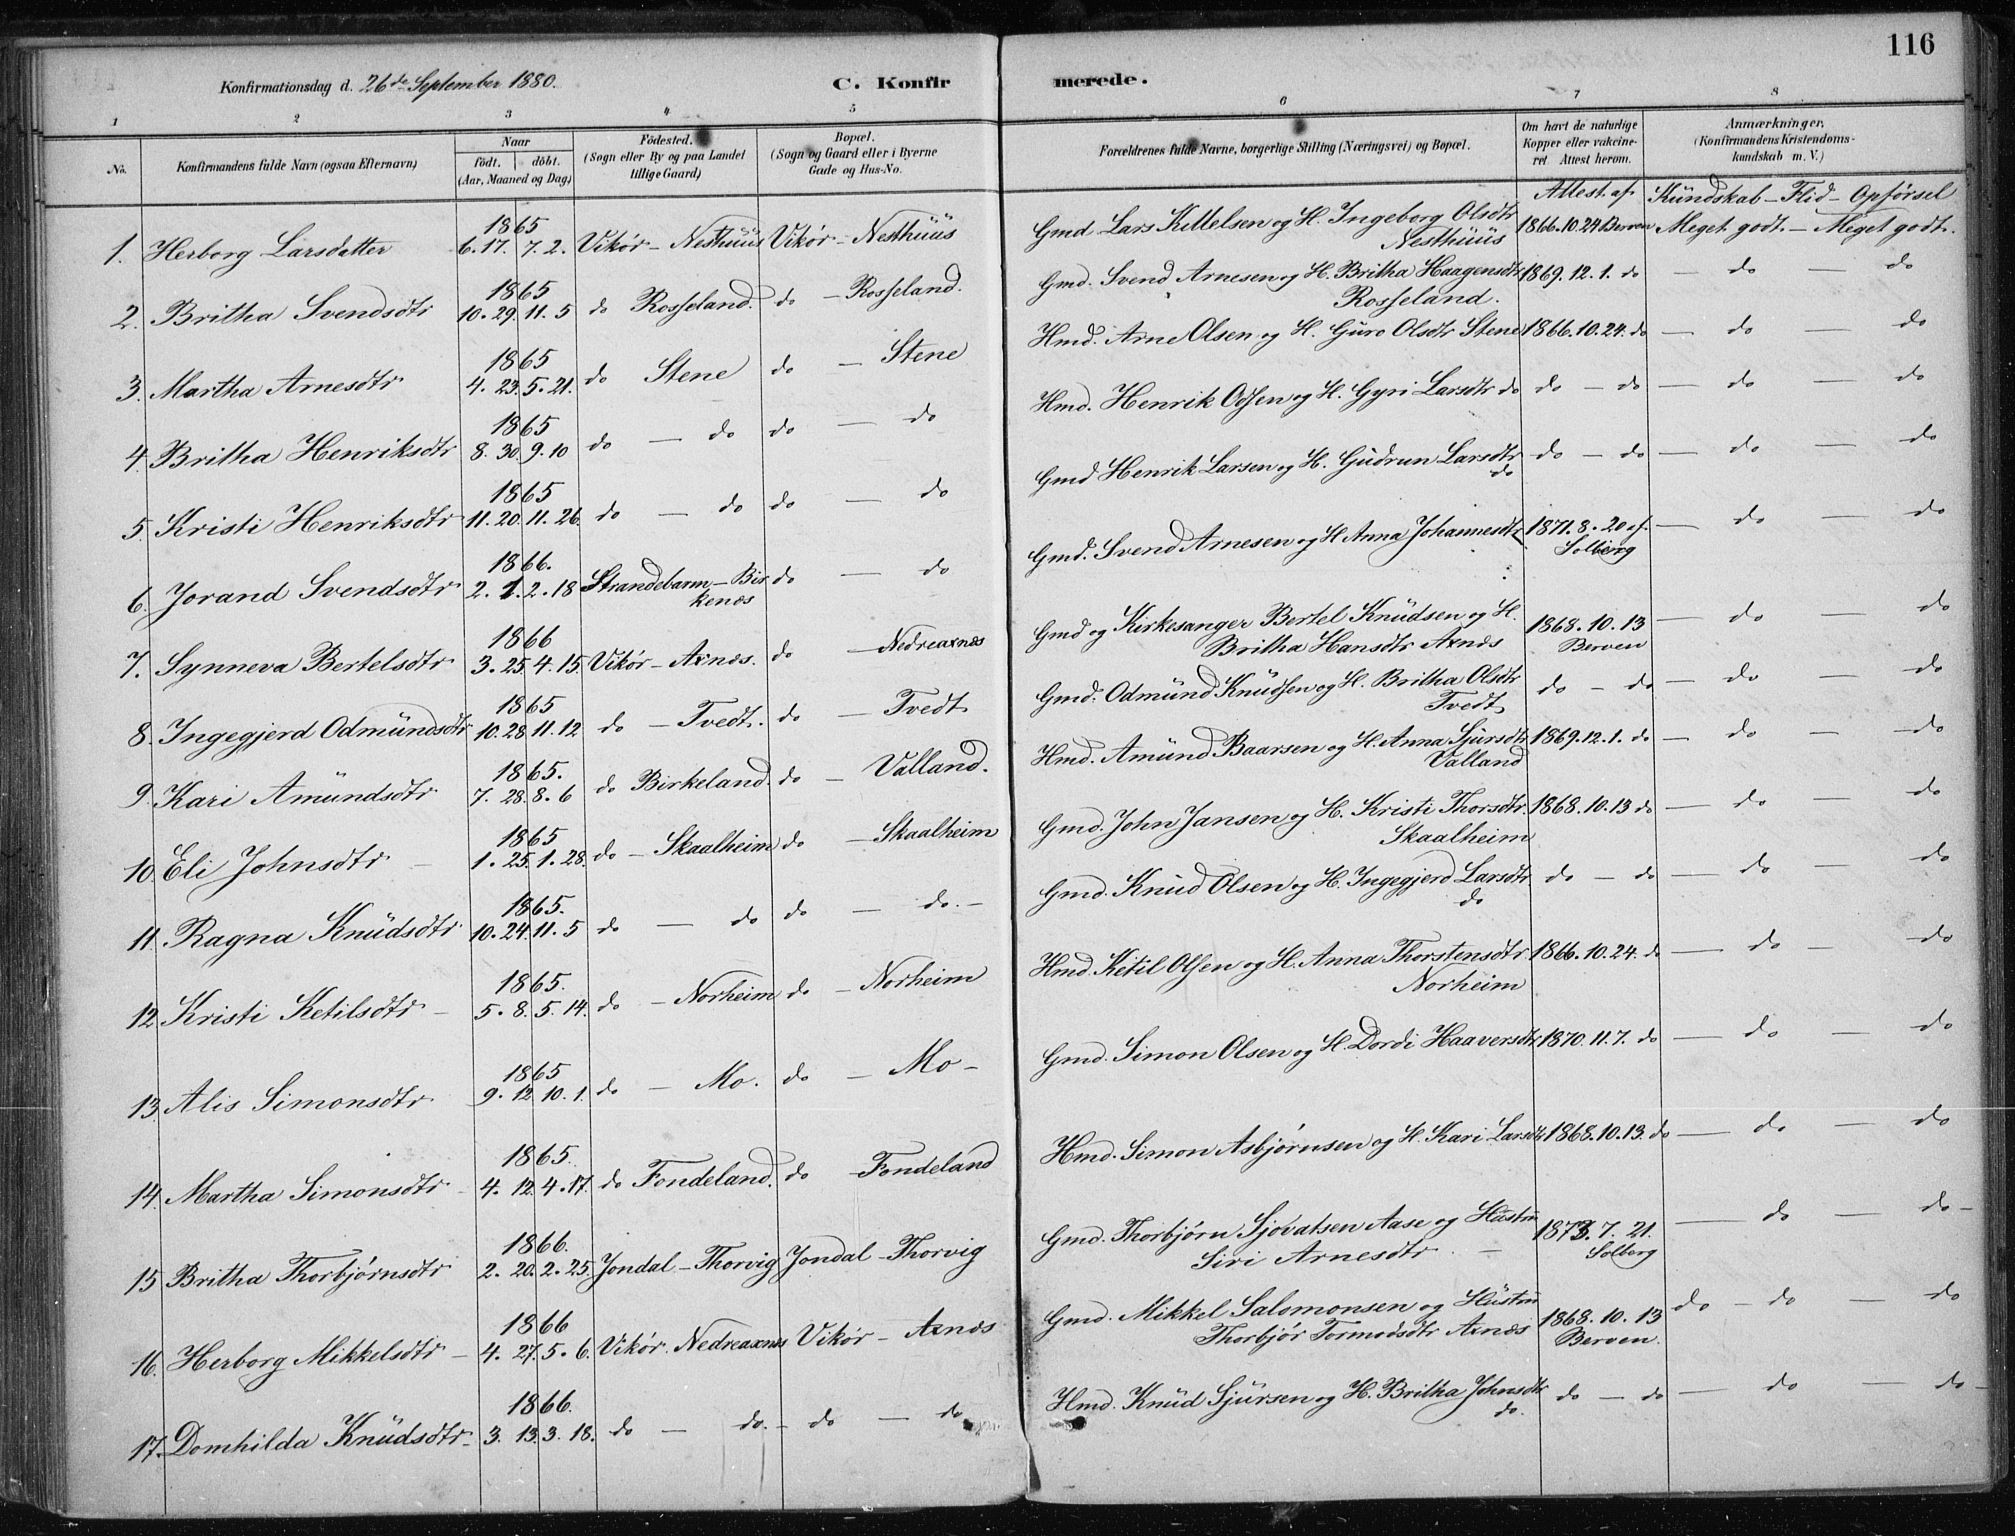 116
Konfirmationsdag d. 26de September 1880.
C. Konfirmerede.
1 2 3 4 5 6 7 8
No.
Konfirmandens fulde Navn (ogsaa Efternavn)
Naar
födt. | döbt.
(Aar, Maaned og Dag)
Födested.
(Sogn eller By og paa Landet
tillige Gaard)
Bopæl.
(Sogn og Gaard eller i Byerne
Gade og Hus-No.
Forældrenes fulde Navne, borgerlige Stilling (Næringsvei) og Bopæl.
Om havt de naturlige
Kopper eller vakcine-
ret. Attest herom.
Anmærkninger.
(Konfirmandens Kristendoms-
kundskab m. V.)
Attest af. Kündskab – Flid – Opförsel
1865
1. Herborg Larsdatter 6.17. 7.2. Vikör – Nesthüüs Vikör – Nesthüüs Gmd. Lars Kittelsen og H. Ingeborg Olsdtr 1866.10.24 Berven Meget godt. – Meget godt.
Nesthüüs
1865
2. Britha Svendsdtr 10.29. 11.5 do Rosseland. do – Rosseland. Gmd. Svend Arnesen og H. Britha Haagensdtr 1869.12.1. do – do – do
Rosseland.
1865
3. Martha Arnesdtr 4.23. 5.21. do Stene do – Stene Hmd. Arne Olsen og H. Güro Olsdtr Stene 1866.10.24. do – do – do
1865
4. Britha Henriksdtr 8.30. 9.10 do – do do – do Hmd. Henrik Odsen og H. Gyri Larsdtr do do – do – do – do
1865
5. Kristi Henriksdtr 11.20. 11.26. do – do do – do Gmd Henrik Larsen og H. Güdrun Larsdtr do – do – do – do
do
1866.
6. Jorand Svendsdtr 2.1. 2.18 Strandebarm – Bir do – do Gmd. Svend Arnesen og H Anna Johannesdtr 1871.8.20 af. – do – do
kenæs
Solberg
1866
7. Synneva Bertelsdtr 3.25. 4.15. Vikör – Axnæs. do – Nedreaxnæs Gmd og Kirkesanger Bertel Knüdsen og H. 1868.10.13 – do – do
Britha Hansdtr Axnæs Berven
1865
8. Ingegjerd Odmündsdtr 10.28. 11.12 do – Tvedt. do – Tvedt Gmd. Odmünd Knüdsen og H. Britha Olsdtr do – do – do – do
Tvedt
1865.
9. Kari Amündsdtr 7.28. 8.6 do Birkeland. do – Valland. Hmd. Amünd Baarsen og H. Anna Sjürsdtr 1869.12.1. do – do – do
Valland
1865
10. Eli Johnsdtr – 1.25. 1.28. do – Skaalheim do – Skaalheim Gmd. John Jansen og H. Kristi Thorsdtr. 1868.10.13 do – do – do
Skaalheim
1865.
11. Ragna Knüdsdtr 10.24. 11.5 do – do do – do. – Gmd. Knüd Olsen og H. Ingegjerd Larsdtr. do – do – do – do
do
1865.
12. Kristi Ketilsdtr – 5.8. 5.14. do – Norheim do – Norheim Hmd. Ketil Olsen og H. Anna Thorstensdtr 1866.10.24. do – do – do
Norheim
1865
13. Alis Simonsdtr 9.12. 10.1. do – Mo. do – Mo – Gmd. Simon Olsen og H. Dordi Haaversdtr 1870.11.7. do – do – do
1865.
14. Martha Simonsdtr – 4.12. 4.17. do Fondeland. do – Fondeland Hmd. Simon Asbjörnsen og H. Kari Larsdtr 1868.10.13. do – do – do
1866.
15. Britha Thorbjörnsdtr 2.20. 2.25. Jondal – Thorvig Jondal – Thorvig Gmd. Thorbjörn Sjovatsen Aase og Hüstru 1873.7.21. – do – do –
Siri Arnesdtr – Solberg
1866
16. Herborg Mikkelsdtr – 4.27. 5.6. Vikör. Nedreaxnæs Vikör – Axnæs Gmd. Mikkel Salomonsen og Hüstru 1868.10.13 do – do – do
Thorbjör Tormodsdtr Axnæs Berven.
1866.
17. Domhilda Knüdsdtr – 3.13. 3.18. do – do. – do – do Hmd. Knüd Sjürsen og H. Britha Johnsdtr do – do – do – do –
do.